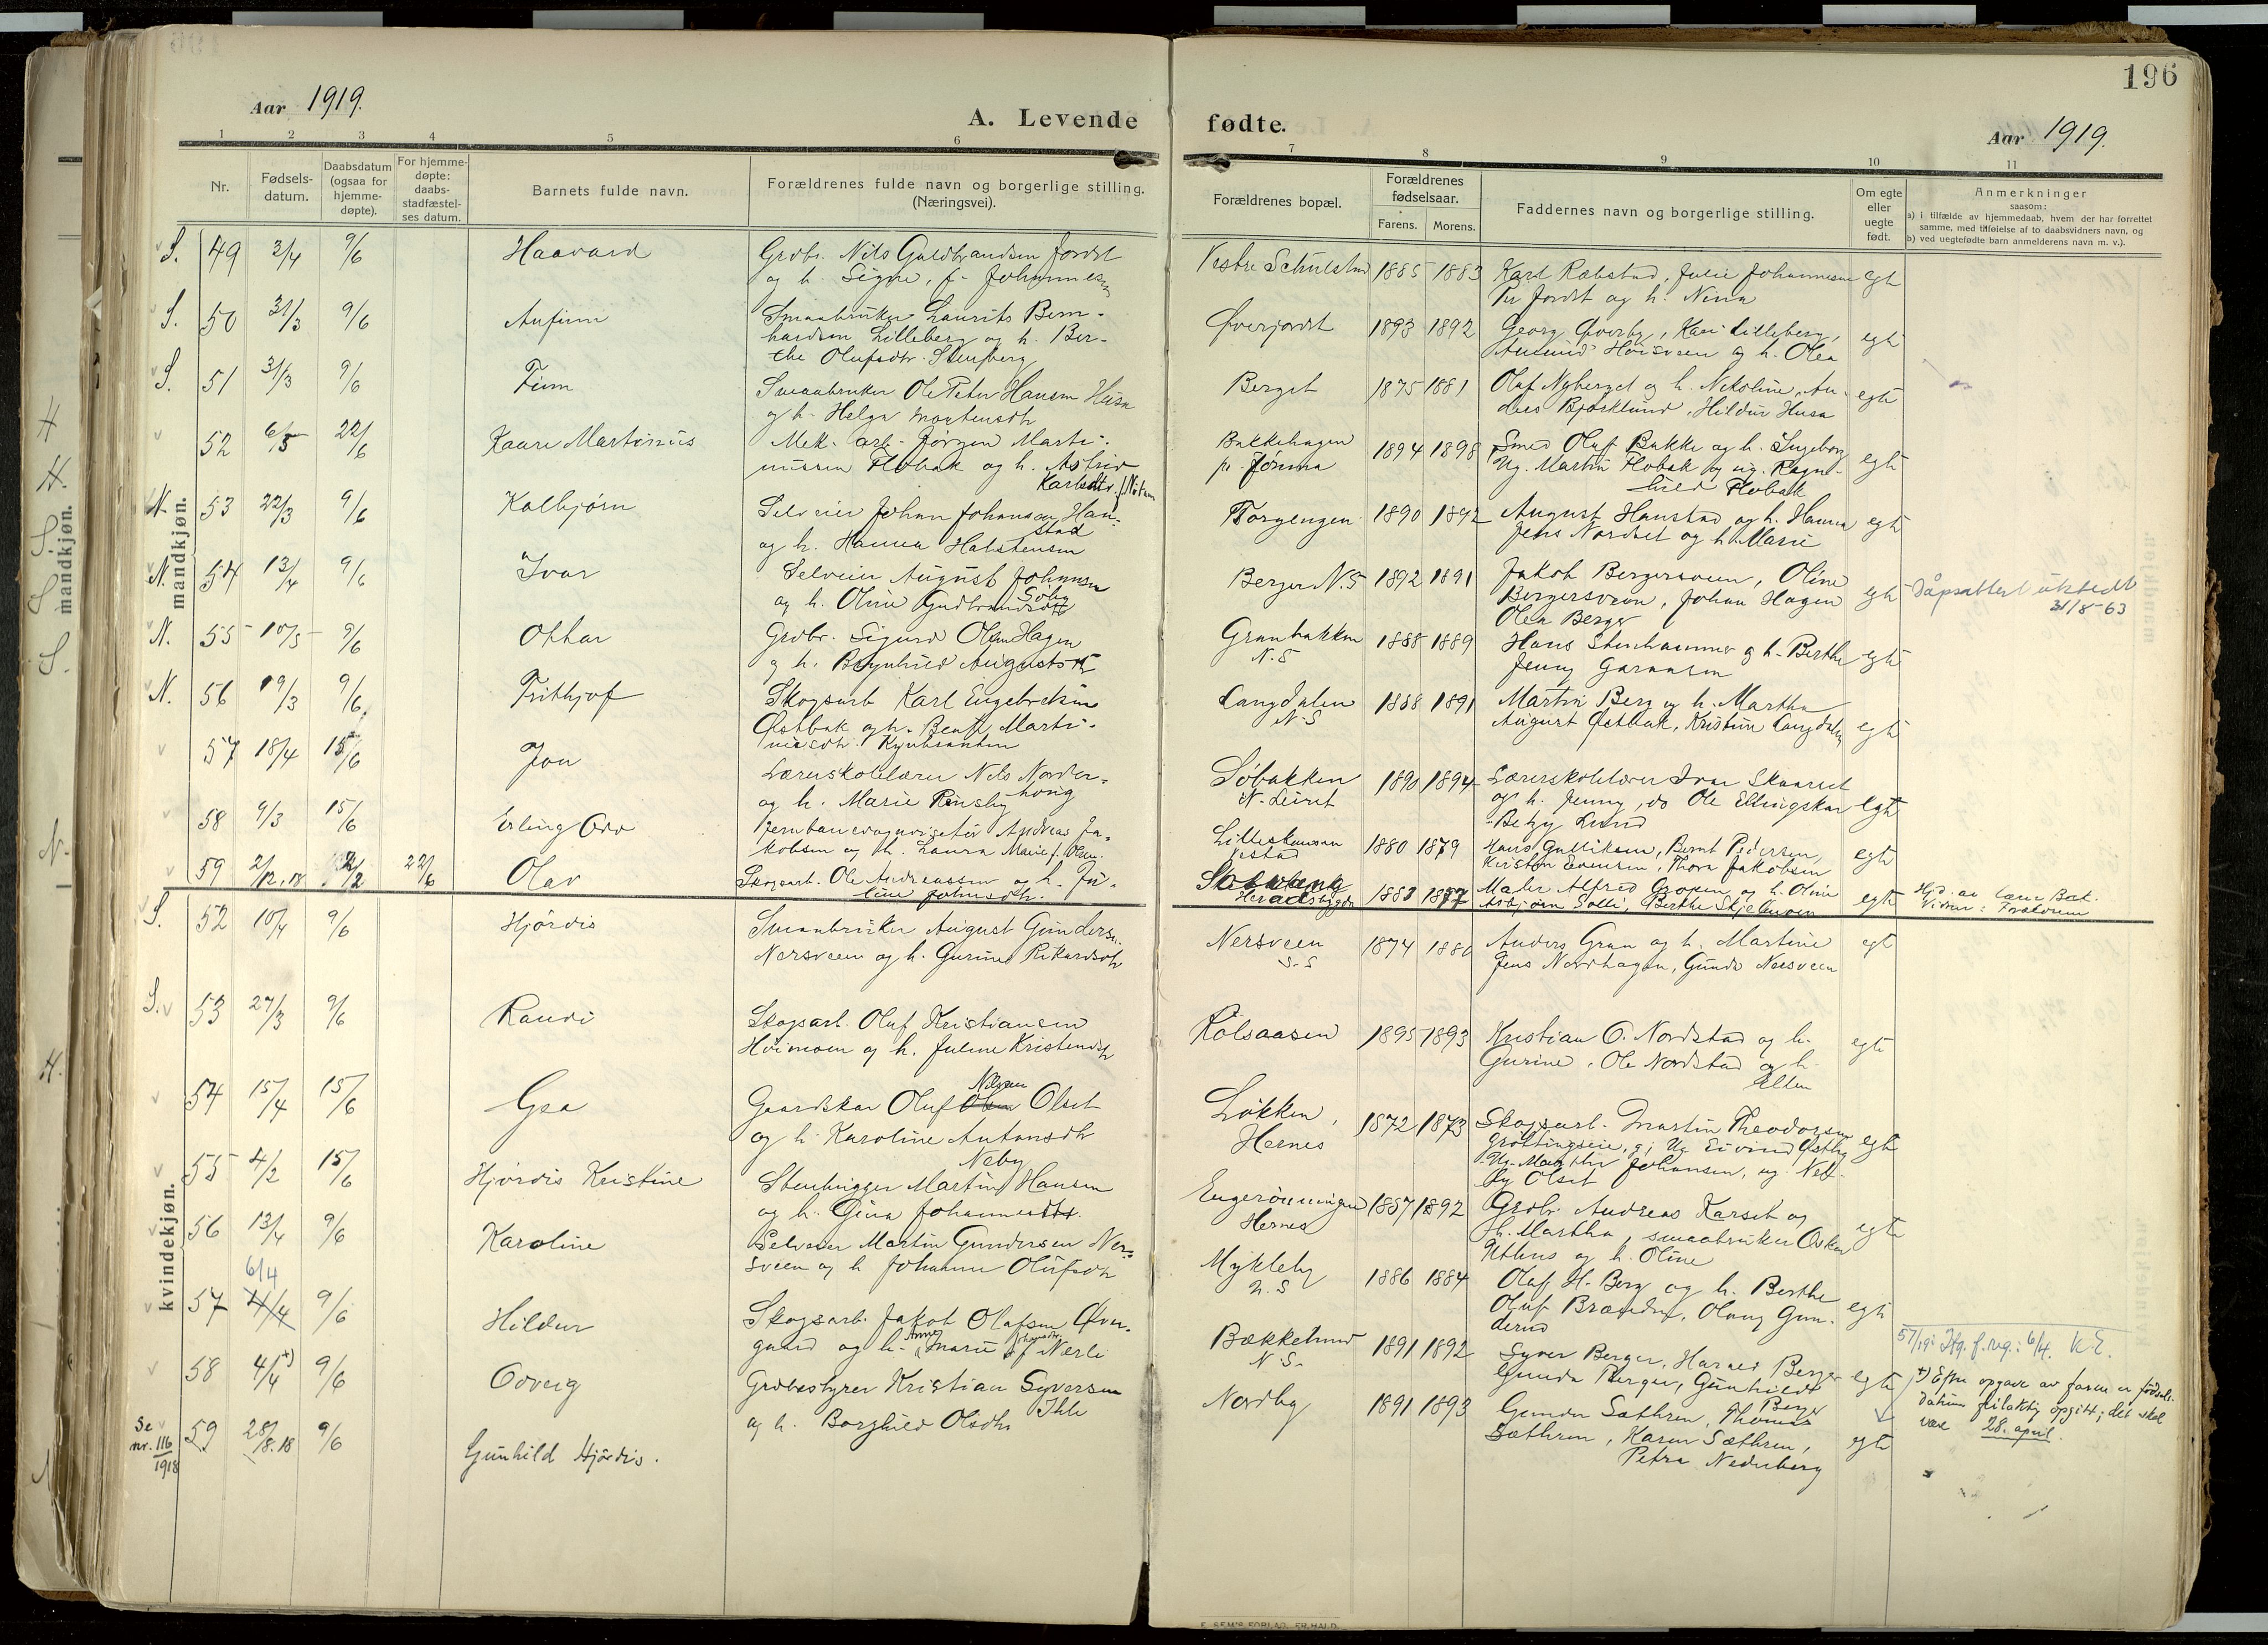 196
Aar 1919.
A. Levende fødte.
Aar 1919.
1 2 3 4 5 6 7 8 9 10 11
Nr.
Fødsels-
datum.
Daabsdatum
(ogsaa for
hjemme-
døpte).
For hjemme-
døpte:
daabs-
stadfæstel-
ses datum.
Barnets fulde navn.
Forældrenes fulde navn og borgerlige stilling.
(Næringsvei).
Forældrenes bopæl.
Forældrenes
fødselsaar.
Farens. Morens.
Faddernes navn og borgerlige stilling.
Om egte
eller
uegte
født.
Anmerkninger
saasom:
a) i tilfælde av hjemmedaab, hvem der har forrettet
samme, med tilføielse af to daabsvidners navn, og
b) ved uegtefødte barn anmelderens navn m. v.).
mandkjøn.
S. 49 3/4 9/6 Haavard
Grdbr. Nils Guldbrandsen Jordet
og h. Signe, f. Johannesen
Vestre Schulstad 1885 1883
Karl Rabstad, Julie Johannesen
Per Jordet og h. Nina
egte
S. 50 31/3 9/6 Anfinn
Smaabruker Laurits Bern-
hardsen Lilleberg og h. Ber-
the Olufsdtr. Stenberg
Øverjordet 1893 1892
Georg Øverby, Kari Lilleberg,
Amund Høisveen og h. Olea
egte
S. 51 31/3 9/6 Finn
Smaabruker Ole Peter Hansen Husa
og h. Helga Mortensdtr
Berget 1875 1881
Olaf Nyberget og h. Nikoline, An-
ders Bjørklund, Hildur Husa
egte
52 6/5 22/6 Kaare Martinius
Mek. arb. Jørgen Marti-
niusen Flobak og h. Astrid
Karlsdtr. f. Nøtum
Bakkehagen
pr. Jømna 1894 1898
Smed Oluf Bakke og h. Ingeborg
Ug. Martin Flobak og ug. Ragn-
hild Flobak
egte
N. 53 22/3 9/6 Kolbjørn
Selveier Johan Johansen Han-
stad
og h. Hanna Halstensen
Torgengen 1890 1892
August Hanstad og h. Hanna
Jens Nordset og h. Marie
egte
N. 54 13/4 9/6 Ivar
Selveier August Johansen
Søby
og h. Oline Gudbrandsdtr
Berger N.S 1892 1891
Jakob Bergersveen, Oline
Bergersveen, Johan Hagen
Olea Berger
egte
Dåpsattest utstedt
31/8-63
N. 55 10/5 9/6 Othar
Grdbr. Sigurd Olsen Hagen
og h. Brynhild Augustsdtr
Granbakken
N.S 1888 1889
Hans Stenhammer og h. Berthe
Jenny Garaasen
egte
N. 56 19/3 9/6 Frithjof
Skogsarb Karl Engebretsen
Østbak og h. Berte Marti-
niusdtr. Kynbraaten
Langdalen
N.S 1888 1891
Martin Berg og h. Martha
August Østbak, Kristine Langdalen
egte
57 18/4 15/6 Jon
Lærerskolelærer Nils Norder-
houg
og h. Marie Rensby
Søbakken
N. Leiret 1890 1894
Lærerskolelærer Ivar Skaaret
og h. Jenny, do Ole Ellingskar
Betzy Lund
egte
58 9/3 15/6 Erling Odd
Jernbanevognvisitør Andreas Ja-
kobsen og h. Laura Marie f. Olsen.
Lilleskansen
Vestad 1880 1879
Hans Gulliksen, Bernt Pedersen,
Kristen Evensen, Thora Jakobsen
egte
59 2/12.18 22/2 22/6 Olav
Skogsarb. Ole Andreassen og h. Ju-
line Johnsdtr.
Heradsbygda 1883 1877
Maler Alfred Gropen og h. Oline
Asbjørn Solli, Berthe Skjelmoen
egte
kvindekjøn.
S. 52 10/4 9/6 Hjørdis
Smaabruker August Gunders.
Nersveen og h. Gurine Rikardsdtr
Nersveen
S.S 1874 1880
Anders Gran og h. Martine
Jens Nordhagen, Gunda Nersveen
egte
S. 53 27/3 9/6 Randi
Skogsarb. Oluf Kristiansen
Høimoen og h. Juline Kristensdtr
Kølsaasen 1895 1893
Kristian O. Nordstad og h.
Gurine, Ole Nordstad og h.
Ellen
egte
54 15/4 15/6 Gea
Gaardskar Oluf Nilsen Olset
og h. Karoline Antonsdtr
Løkken,
Hernes 1872 1873
Skogsarb. Martin Theodorsen
Grøttingseie, g; Ug. Eivind Østby
Ug. Marthe Johansen, ug Nel-
ly Olset
egte
55 4/2 15/6 Hjørdis Kristine
Neby
Stenhugger Martin Hansen
og h. Gina Johannesdtr.
Engerønningen
Hernes 1887 1892
Grdbr. Andreas Karset og
h. Martha, smaabruker Oskar
Uthus og h. Oline
egte
56 13/4 9/6 Karoline
Selveier Martin Gundersen Ner-
sveen og h Johanne Olufsdtr
Mykleby
N.S 1886 1884
Olaf H. Berg og h. Berthe
Oluf Brænden, Olaug Gun-
derud
egte
6/4
57 4/4 9/6 Hildur
Skogsarb. Jakob Olafsen Øver-
gaard og h. Anne Marie f. Nerli
Bækkelund
N.S. 1891 1892
Syver Berger, Harald Berger
Gunda Berger, Gunhild
Berger
egte
57/19: Iflg. f. reg.: 6/4. K.E.
58 4/4 x) 9/6 Oddveig
Grdbestyrer Kristian Syversen
Ihle
og h. Borghild Olsdtr
Nordby 1891 1893
Gunder Sæthren, Thomas
Sæthren, Karen Sæthren,
Petra Nederberg
egte
x) Efter opgave av faren er fødsels-
datum feilaktig opgitt; det skal
være 28. april.
Se
nr. 116
1918
59 28/8.18 9/6 Gunhild Hjørdis.